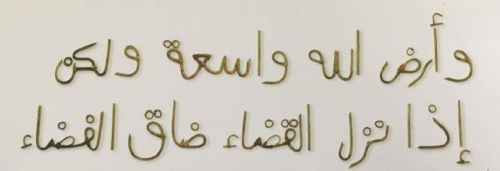 وأرض الله واسعة ولكن
إذا نزل القضاء ضاق الفضاء